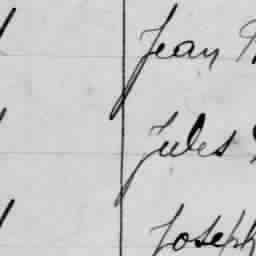 Jean
Jules
Joseph